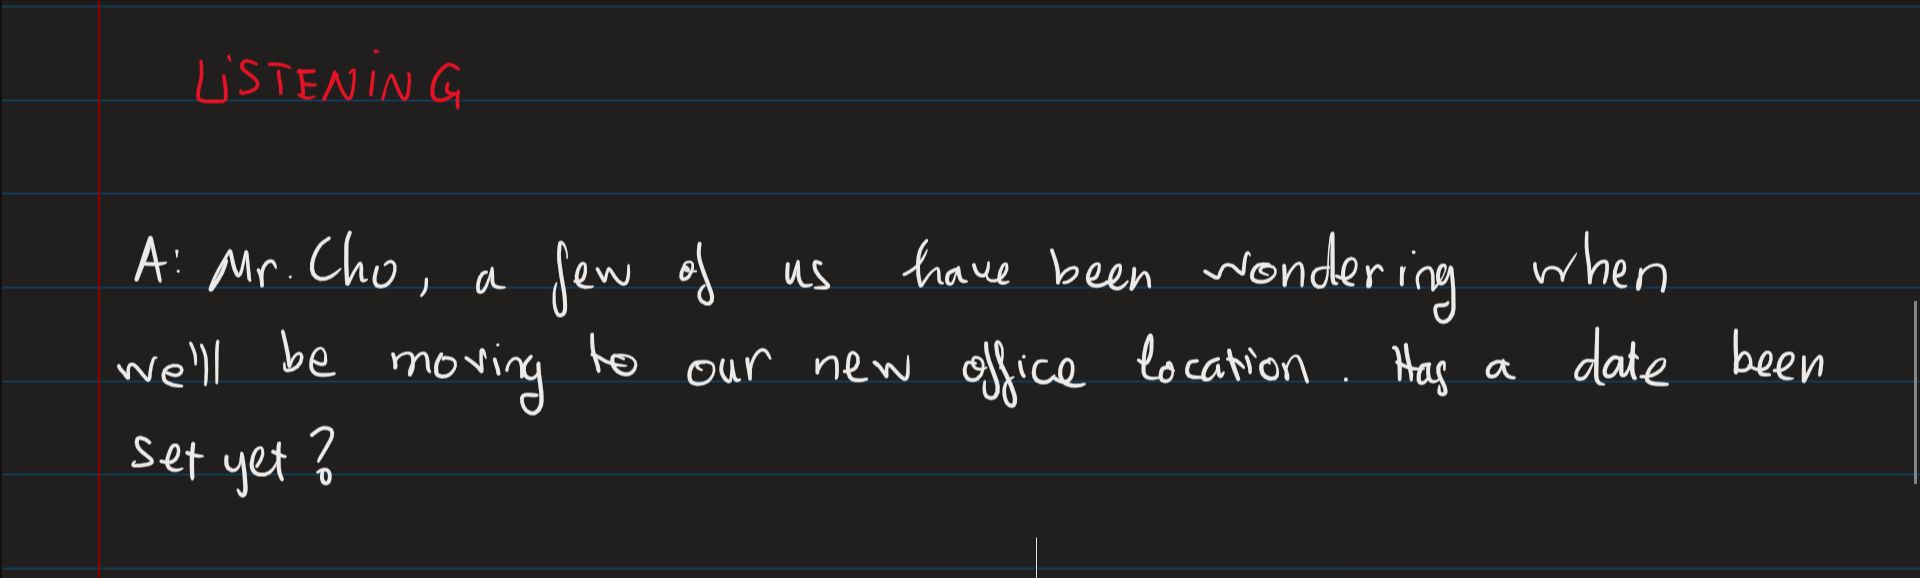 LISTENING
A: Mr. Cho, a few of us have been wondering when
we'll be moving to our new office location. Has a date been
set yet?